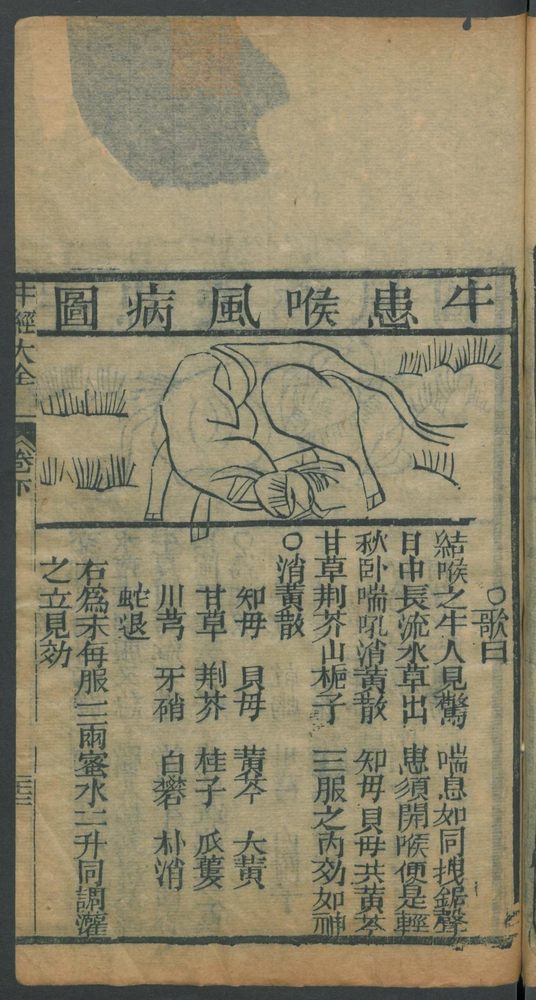 牛患喉風病圖
○歌曰
結喉之牛人見驚 喘息如同拽鋸聲
日中長流水草出 患須開喉便是輕
秋卧喘吼消黃散 知母貝母共黃芩
甘草荆芥山梔子 三服之内効如神
○消黃散
知母 貝母 黃芩 大黃
甘草 荆芥 桂子 瓜蔞
川芎 牙硝 白礬 朴消
蛇退
右爲末每服三兩蜜水二升同調灌
之立見効
牛經大全 卷下